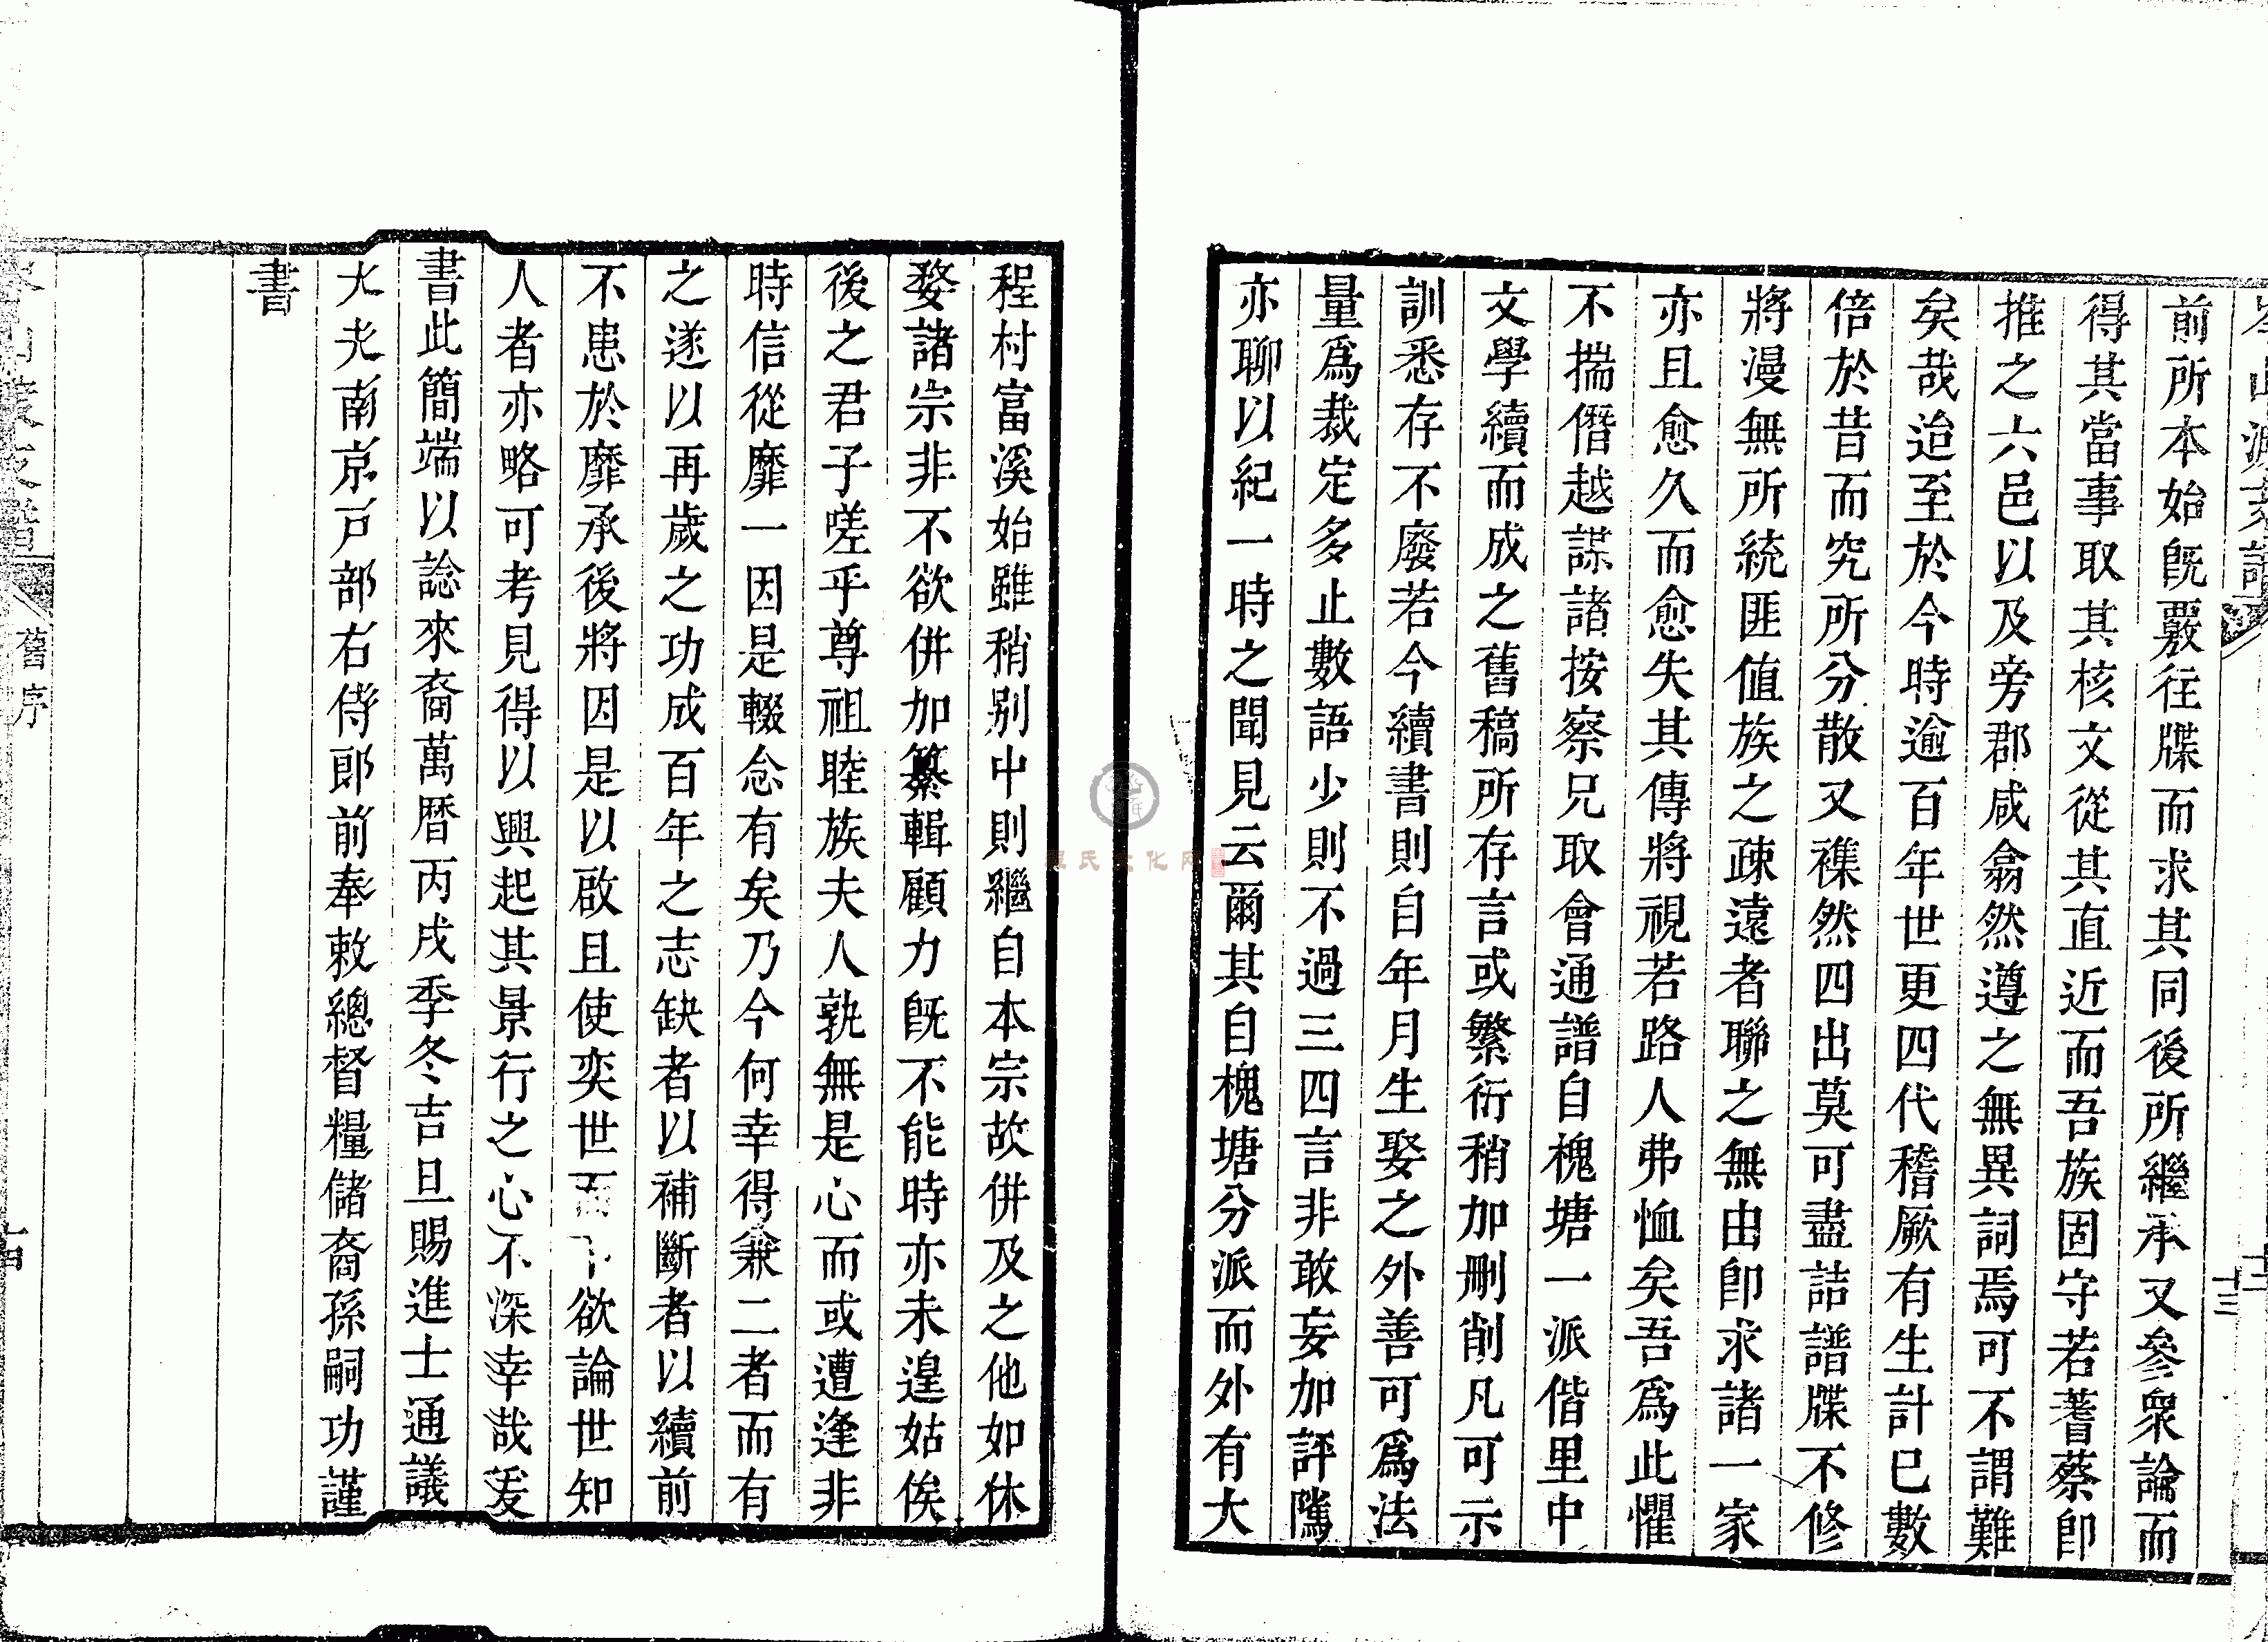 前所本始既覈往牒而求其同後所繼承又參衆論而
得其當事取其核文從其直近而吾族固守若蓍蔡即
推之六邑以及旁郡咸翕然遵之無異詞焉可不謂難
矣哉迨至於今時逾百年世更四代稽厥有生計已數
倍於昔而究所分散又襍然四出莫可盡詰譜牒不修
將漫無所統匪值族之疎遠者聯之無由即求諸一家
亦且愈久而愈失其傳將視若路人弗恤矣吾爲此懼
不揣僭越謀諸按察兄取會通譜自槐塘一派偕里中
文學續而成之舊稿所存言或繁衍稍加刪削凡可示
訓悉存不廢若今續書則自年月生娶之外善可爲法
量爲裁定多止數語少則不過三四言非敢妄加評隲
亦聊以紀一時之聞見云爾其自槐塘分派而外有大
程村富溪始雖稍别中則繼自本宗故併及之他如休
婺諸宗非不欲併加纂輯顧力既不能時亦未遑姑俟
後之君子嗟乎尊祖睦族夫人孰無是心而或遭逢非
時信從靡一因是輟念有矣乃今何幸得兼二者而有
之遂以再歲之功成百年之志缺者以補斷者以續前
不患於靡承後將因是以啟且使奕世而下欲論世知
人者亦略可考見得以興起其景行之心不深幸哉爰
書此簡端以諗來裔萬曆丙戌季冬吉旦賜進士通議
大夫南京戸部右侍郎前奉敕總督糧儲裔孫嗣功謹
書
舊序